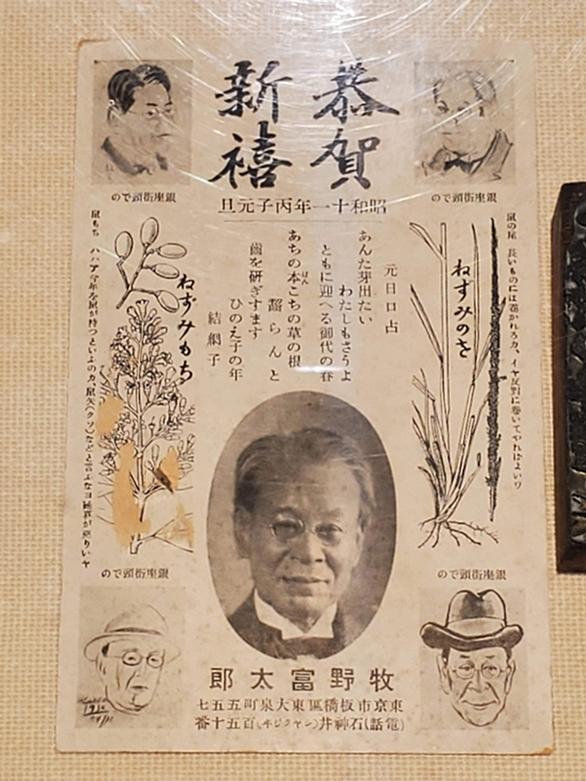 恭賀
新禧
昭和十一年丙子元旦
銀座街頭での
銀座街頭での
鼠の尾 長いものには巻かれろカ、イヤ反對に巻いてやればよいワ
ねずみのを
元日口占
あんた芽出たい
わたしもさうよ
ともに迎へる御代の春
あちの本こちの草の根
齧らんと
齒を研ぎすます
ひのえ子の年
結網子
ねずみもち
鼠もち ハハア今年を鼠が持つといふのカ、鼠矢(クソ)などと言ふなヨ が悪りいヤ
銀座街頭での
銀座街頭での
牧野富太郎
東京市板橋區東大泉町五五七
(電話)石神井(シヤクジヰ)百五十番